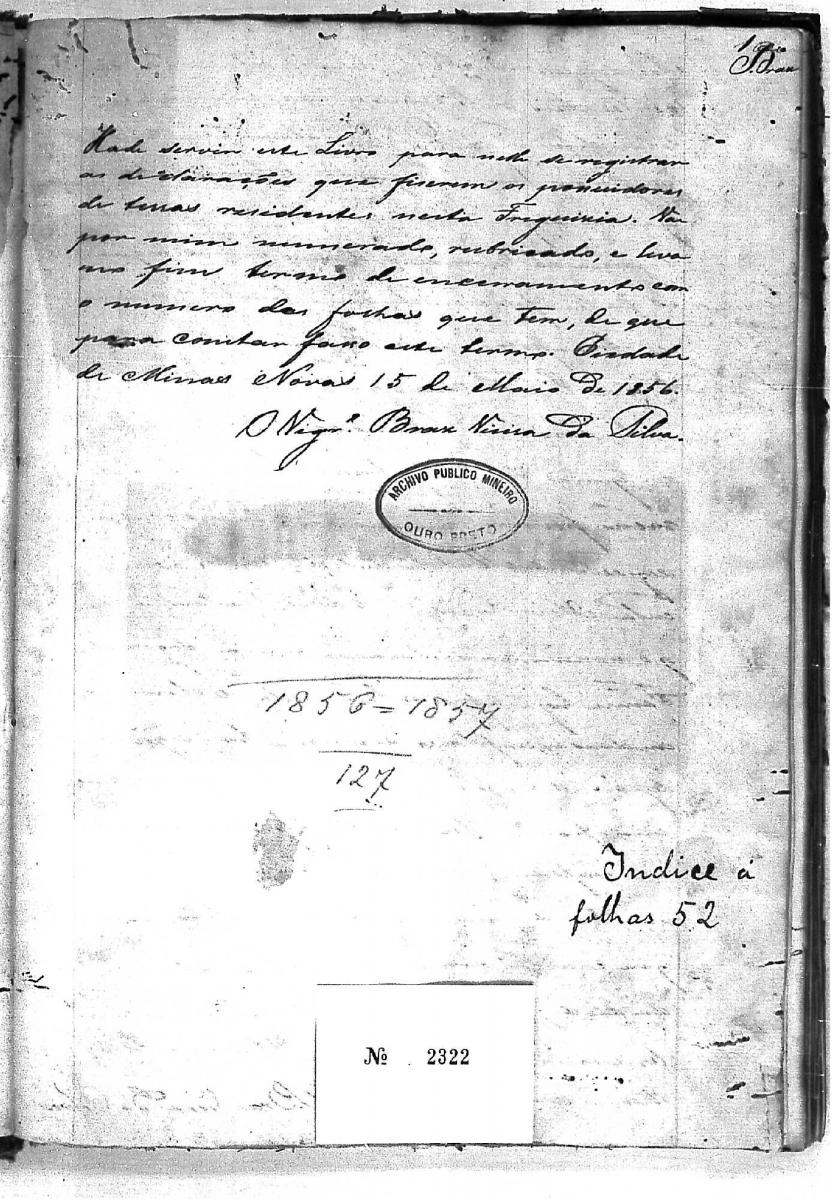 1
Braz
Hade servir este Livro para nelle se registrar
as declarações que fiserem os possuidores
de terras residentes nesta Freguizia. Vai
por mim numerado, rubricado, e leva
no fim termo de encerramento com
o numero das folhas que tem, de que
para constar faço este termo. Piedade
de Minas Novas 15 de Maio de 1856.
O Vigr.º Braz Vieira da Silva.
ARCHIVO PUBLICO MINEIRO
OURO PRETO
1856=1857
127
Indice á
folhas 52
Nº 2322